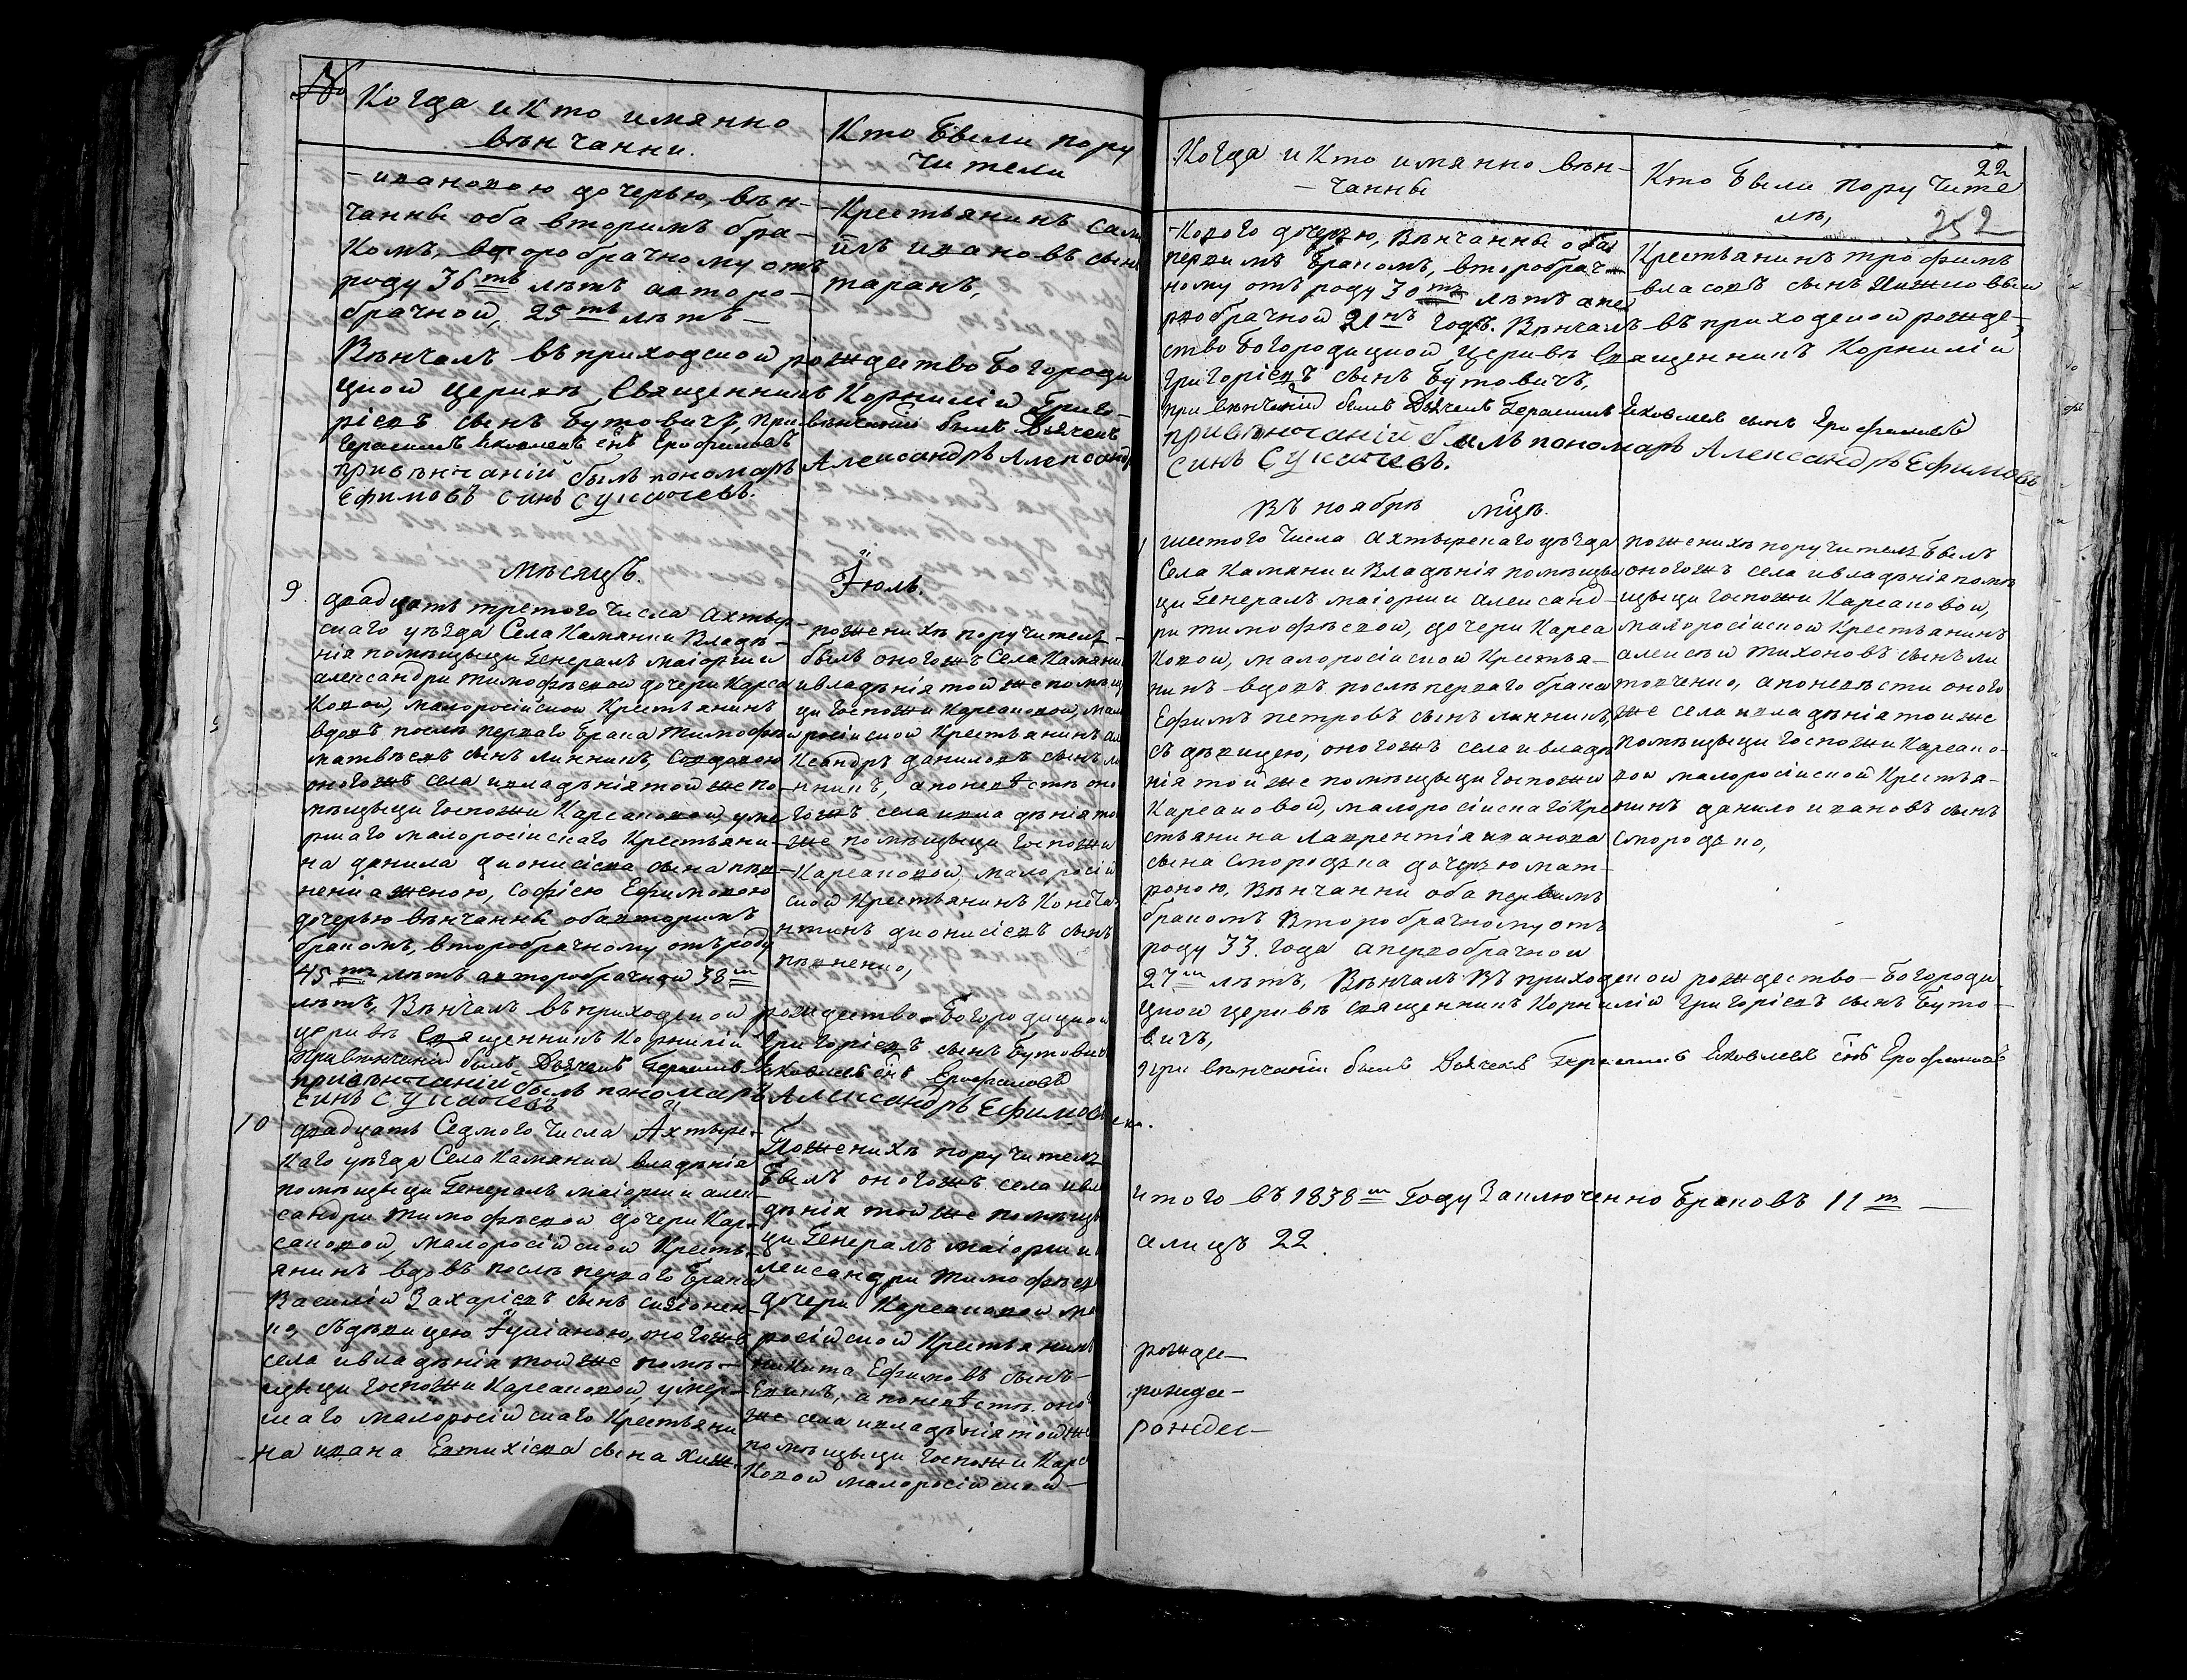 №
Когда и Кто имянно
вѣнчанни.
Кто Были пору
чители
-ивановою дочерью, вѣн-
чанны оба вторимъ бра-
комъ, второбрачному отъ
роду 36ть лѣтъ авторо-
брачной, 25ть лѣтъ-
Крестьянинъ
илъ ивановъ сынъ
таранъ,
Вѣнчалъ въ приходской рождество Богороди
цной церквѣ, Священникъ Корнилій Григо-
ріевъ сынъ Бутовичъ, При вѣнчаніи былъ Дьячекъ
Герасимъ Яковлевъ снъ Ерофаловъ
при вѣнчаній былъ пономаръ Александръ
Ефимовъ синъ
мѣсяцъ.
Іюль.
9.
двадцать третого числа Ахтыр-
скаго уѣзда Села Камянки Владѣ-
нія помѣщыци Генералъ маіоршы
александри тимофѣевой дочери Карса
ковой, малоросійской Крестьянинъ
вдовъ послѣ перваго брака тимофѣй
матвѣевъ сынъ линникъ, Совдовою
оногожъ села ивладѣнія той же по-
мѣщыци госпожи Карсаковой, уме
ршаго малоросійскаго Крестьяни-
на данила дионисіева сына пѣв-
ненка женою, Софією Ефимовою
дочерью вѣнчанны оба вторимъ
бракомъ, второбрачному отъ роду
45ть лѣтъ авторобрачной 38м
лѣтъ, Вѣнчалъ въ приходской рождество-Богородицной
церквѣ Священникъ Корнилій Григоріевъ сынъ Бутович
при вѣнчаніи былъ Дьячекъ Герасимъ Яковлевъ снъ Ерофаловъ
при вѣнчаній былъ пономаръ Александръ Ефимовъ
синъ
поженихѣ поручитель-
былъ оногожъ Села Камянк
ивладѣнія той же помѣщ
ци госпожи Карсаковой, мал
російской Крестьянинъ ал
Ксандръ даниловъ сынъ ли
нникъ, а поневѣстѣ оно
гожъ села ивладѣнія той
же помѣщыци госпожи
Карсаковой, малоросій
ской Крестьянинъ Конста
нтинъ дионисіевъ сынъ
пѣвненко,
10
двадцать Седмого числа Ахтырс-
каго уѣзда Села Камянки владѣнія
помѣщыци Генералъ маіорши алек-
сандри тимофѣевой дочери Кар-
саковой, малоросійской Кресть-
янинъ вдовъ послѣ перваго Брака
Василій Захаріевъ сынъ
съ дѣвицею Іуліаною, оногожъ
села ивладѣнія той же помѣ-
щыци госпожи Карсаковой, умер-
шаго малоросійскаго Крестьяни
на ивана Евтихіева сына хиж-
Поженихѣ поручитель
Былъ оногожъ села ивла
дѣнія той же помѣщы
ци Генералъ маіорши
лександри тимофѣев
дочери Карсаковой ма
російской Крестьянинъ
никита Ефимовъ сынъ-
а поневѣстѣ оно
же села ивладѣнія той же
помѣщыци госпожи Карс
Ковой малоросійской-
Когда и Кто имянно вѣн-
-чанны
Кто Были поручите
ли,
22
252
-кового дочерю, вѣнчанны оба
первимъ бракомъ, второбрач-
ному отъ роду 30ть лѣтъ апе
рвобрачной 21нъ годъ. Вѣнчалъ въ приходской рожде-
ство Богородицной церквѣ Священникъ Корнилій
Григоріевъ сынъ Бутовичъ,
при вѣнчаніи былъ Дьячекъ Герасимъ Яковлевъ сынъ Ерофаловъ
при вѣнчаній былъ пономаръ Александръ Ефимовъ
синъ
Крестьянинъ трофимъ
власовъ сынъ
Въ ноябрѣ мцѣ.
шестого числа Ахтырскаго уѣзда
Села Камянки Владѣнія помѣщы
ци Генералъ маіорши александ-
ри тимофѣевой, дочери Карса
ковой, малоросійской Крестья-
нинъ вдовъ послѣ перваго брака
Ефимъ петровъ сынъ линникъ,
съ дѣвицею, оногожъ села и владѣ
нія той же помѣщыци госпожи
Карсаковой, малоросійскаго Кре
стьянина лаврентія иванова
сына Смородька дочерю мат-
роною, Вѣнчанни оба первимъ
бракомъ второбрачному отъ
роду 33. года апервобрачной
27м лѣтъ, Вѣнчалъ въ приходской рождество-Богороди
цной церквѣ священникъ Корнилій Григоріевъ сынъ Буто-
вичъ,
при вѣнчаніи былъ Дьячекъ Герасимъ Яковлевъ снъ Ерофаловъ
поженихѣ поручитель Былъ
оногожъ села ивладѣнія помѣ
щыци госпожи Карсаковой,
малоросійской Крестьянинъ
алексѣй тихоновъ сынъ ли
товченко, апоневѣсти оного
же села ивладѣнія той же
помѣщыци госпожи Карсако-
вой малоросійской Крестья-
нинъ данило ивановъ сынъ
Смородько,
итого въ 1838м Году Заключенно Браковъ 11т-
алицъ 22.
рожде-
рожде-
рождес-